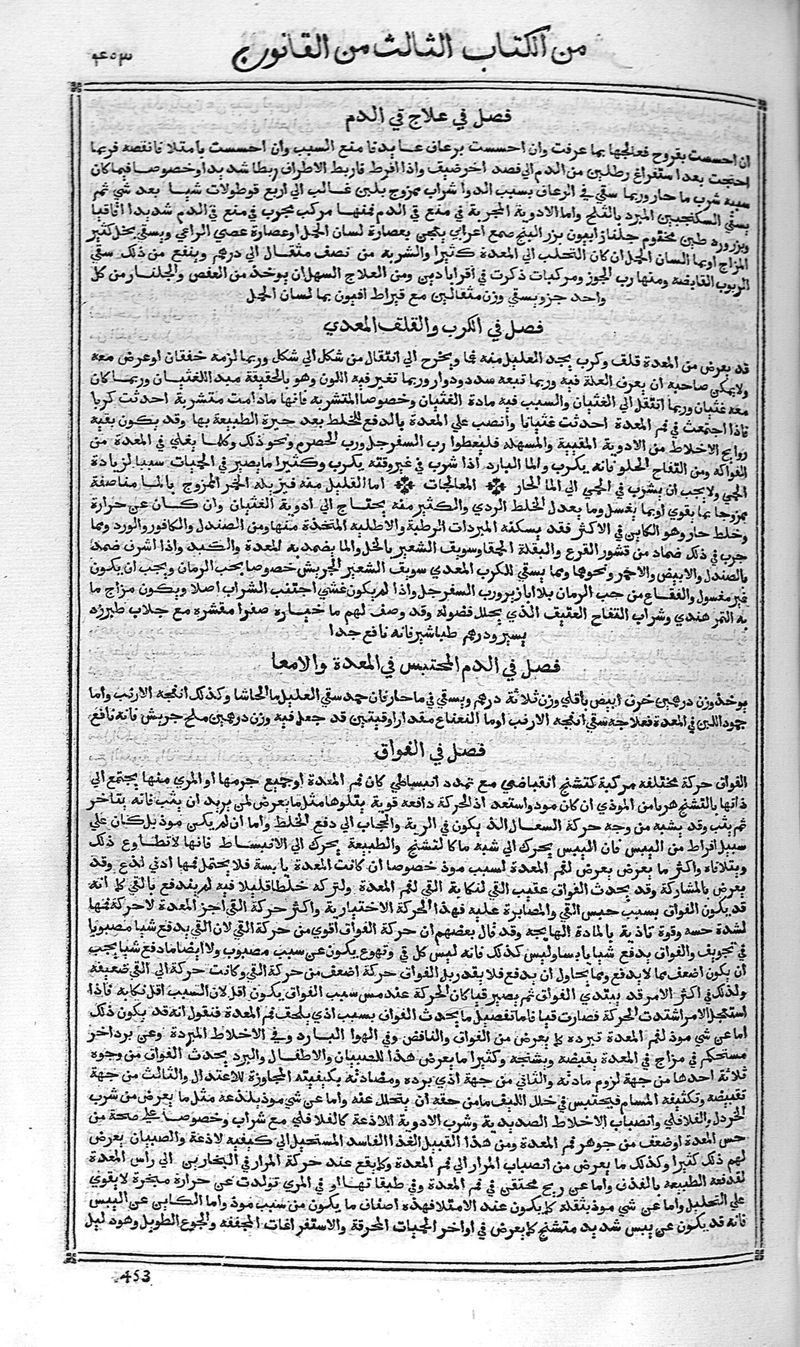 من الكتاب الثالث من القانون
٤٥٣
فصل في علاج قي الدم
ان احسست بقروح فعالجها بما عرفت وان احسست برعاف عايد نا منع السبب وان احسست بامتلا نانقصه فربما
احتجت بعد استفراغ رطلين من الدم الي فصد اخر ضيف واذا افرط فاربط الاطراف ربطا شديدا وخصوصا فيما كان
سببه شرب ما حار وربما سقي في الرعاف بسبب الدوا شراب ممزوج بلبن غالب الي اربع قوطولات شيا بعد شي ثم
يسقي السكنجبين المبرد بالثلج واما الادوية المجربة في منع في الدم فمنها مركب مجرب في منع في الدم شديدا اقاقيا
وبزر ورد طين مختوم جلنار افيون بزر البنج صمغ اعرابي يعجن بعصارة لسان الحمل او عصارة عصي الراعي ويسقي بخل كثير
المزاج او بما لسان الحمل ان كان التحلب الي المعدة كثيرا والشربة من نصف مثقال الي درهم وينفع من ذلك سقي
الربوب القابضه ومنها رب الجوز ومركبات ذكرت في اقرابادين ومن العلاج السهل ان يوخذ من العفص والجلنار من كل
واحد جزو يسقي وزن مثقالين مع قيراط افيون بما لسان الحمل
فصل في الكرب والقلف المعدي
قد يعرض من المعدة قلف وكرب يجد العليل منه غما ويخرج الي انتقال من شكل الي شكل وربما لزمه خفقان او عرض معه
ولا يمكن صاحبه ان يعرف العلة فيه وربما تبعه سدد ودوار وربما تغير فيه اللون وهو بالحقيقة مبدا للغثيان وربما كان
معه غثيان وربما انتقل الي الغثيان والسبب فيه مادة الغثيان وخصوصا المتشربه فانها مادامت متشربة احدثت كربا
فاذا اجتمعت في فم المعدة احدثت غثيانا وانصب علي المعدة بالدفع للخلط بعد حيرة الطبيعة بها وقد يكون بقيه
روايح الاخلاط من الادوية المقيية والمسهله فليعطوا رب السفرجل ورب الحصرم ونحو ذلك وكلما يغلي في المعدة من
الفواكه ومن التفاح الحلو فانه يكرب والما البارد اذا شرب في غير وقته يكرب وكثيرا ما يصير في الحميات سببا لزيادة
الحمي ولا يجب ان يشرب في الحمي الي الما الحار المعالجات اما القليل منه فيزيله الخمر الممزوج بالما مناصفة
ممزوجا بما يقوي او بما يغسل وما يعدل الخلط الردي والكثير منه يحتاج الي ادوية الغثيان وان كان عن حرارة
وخلط حار وهو الكاين في الاكثر فقد يسكنه المبردات الرطبة والاطليه المتخذة منها ومن الصندل والكافور والورد ومما
جرب في ذلك ضماد من قشور القرع والبقلة الحمقا وسويف الشعير بالخل والما يضمد به للمعدة والكبد واذا اشرف ضمد
بالصندل والابيض والاحمر ونحوها ومما يسقي للكرب المعدي سويف الشعير الجريش خصوصا بحب الرمان ويجب ان يكون
غير مغسول والفقاع من حب الرمان بلا ابازير ورب السفرجل واذا لم يكون غشي اجتنب الشراب اصلا ويكون مزاج ما
به التمر هندي وشراب التفاح العتيق الذي يحلل فضوله وقد وصف لهم ما خياره صفرا مقشره مع جلاب طبرزد
يسير ودرهم طباشير فانه نافع جدا
فصل في الدم المحتبس في المعدة والامعا
يوخذ وزن درهمين خرف ابيض باقلي وزن ثلاثة درهم ويسقي في ما حار فان جمد سقي العليل ما الحاشا وكذلك انفحة الارنب واما
جمود اللبن في المعدة فعلاجه سقي انفحة الارنب او ما النعناع مقدار اوقيتين قد جعل فيه وزن درهمين ملح جريش فانه نافع
فصل في الفواق
الفواق حركة مختلفه مركبة كتشنج انقباضي مع تمدد انبساطي كان فم المعدة او جميع جرمها او المري منها يجتمع الي
ذاتها بالتشنج هربا من الموذي ان كان موذ واستعد اذ الحركة دافعه قوية يتلوها مثل ما يعرض لمن يريد ان يثب فانه يتاخر
ثم يثب وقد يشبه من وجه حركة السعال الذي يكون في الرية والحجاب الي دفع الخلط واما ان لم يكن موذ بل كان علي
سبيل افراط من اليبس فان اليبس يحرك الي شبه ما كا لتشنج والطبيعة يحرك الي الانبساط فانها لا تطاوع ذلك
ويتلاناه واكثر ما يعرض يعرض لفم المعدة لسبب موذ خصوصا ان كانت المعدة يابسة فلا يحتمل فمها ادني لذع وقد
يعرض بالمشاركة وقد يحدث الفواق عقيب القي لنكاية القي لفم المعدة ولتركه خلطا قليلا فيه لم يندفع بالقي كما انه
قد يكون الفواق بسبب حبس القي والمصابرة عليه فهذا الحركة الاختيارية واكثر حركة القي اجز المعدة لا حركة فمها
لشدة حسه وقوة تاذية بالمادة الهايجه وقد قال بعضهم ان حركة الفواق اقوي من حركة القي لان القي يدفع شيا مصبوبا
في تجويف والفواق يدفع شيا يابسا وليس كذلك فانه ليس كل في وتهوع يكون عن سبب مصبوب ولا ايضا ما دفع شيا يجب
ان يكون اضعف مما لا يدفع ومما يحاول ان يدفع فلا يقدر بل الفواق حركة اضعف من حركة القي وكانت حركة الي القي ضعيفه
ولذلك في اكثر الامر قد يبتدي الفواق ثم يصير قيا كان الحركة عند مس سبب الفواق يكون اقل لان السبب اقل نكايه فاذا
استعجل الامر اشتدت الحركة فصارت قيا فاما تفصيل ما يحدث الفواق بسبب اذي يلحف فم المعدة فنقول انه قد يكون ذلك
اما عن شي موذ لفم المعدة تبرده كما يعرض من الفواق والنافض وفي الهوا البارد وفي الاخلاط المبردة وعن برد اخر
مستحكم في مزاج في المعدة يقبضه ويشنجه وكثيرا ما يعرض هذا للصبيان والاطفال والبرد يحدث الفواق من وجوه
ثلاثة احدها من جهة لزوم مادته والثاني من جهة اذي برده ومضادته بكيفيته المجاوزة للاعتدال والثالث من جهة
تقبيضه وتكثيفه المسام فيحتبس في خلل الليف ما من حقه ان يتحلل عنه واما عن شي موذ بلذعه مثل ما يعرض من شرب
الخردل والفلافلي وانصباب الاخلاط الصديدية وشرب الادوية اللاذعة كالفلافلي مع شراب وخصوصا علي صحة من
حس المعدة او ضعف من جوهر فم المعدة ومن هذا القبيل الغذا الفاسد المستحيل الي كيفيه لاذعة والصبيان يعرض
لهم ذلك كثيرا وكذلك ما يعرض من انصباب المرار الي فم المعدة وكما يقع عند حركة المرار في البحارين الي راس المعدة
لقدفعه الطبيعة بالقذف واما عن ريح محتقن في فم المعدة وفي طبقاتها او في المري تولدت عن حرارة مبخرة لا يقوي
علي التحليل واما عن شي موذ بثقله كما يكون عند الامتلا فهذه اصناف ما يكون من سبب موذ واما الكاين عن اليبس
فانه قد يكون عن يبس شديد متشنج كما يعرض في اواخر الحميات المحرقة والاستفراغات المجففه والجوع الطويل وهو دليل
453